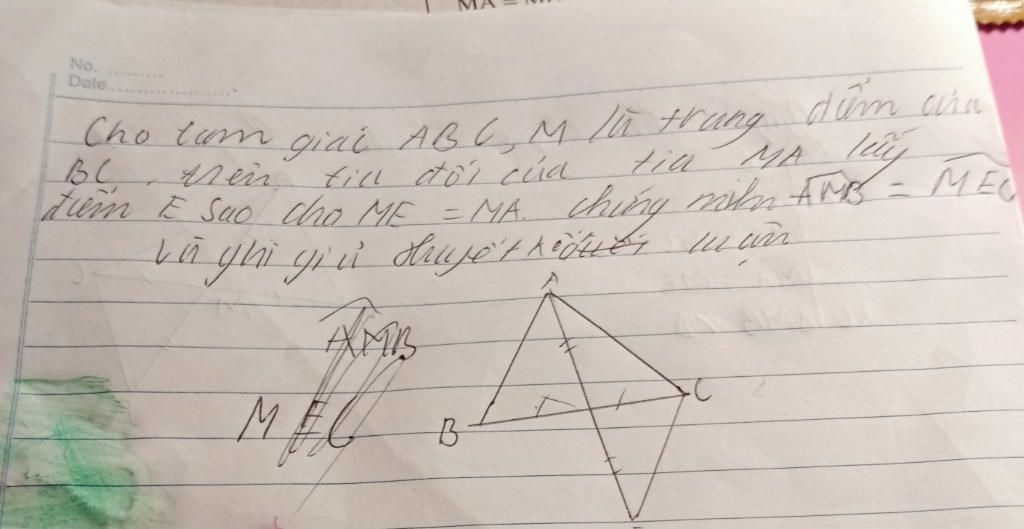 MA = M
No. ........
Date ....................
Cho tam giác ABC, M là trung điểm của
BC. trên tia đối của tia MA lấy
điểm E sao cho ME = MA. chứng minh AMB = MEC
Và ghi giả thuyết kết luận
AMB
MEC
A
B
C